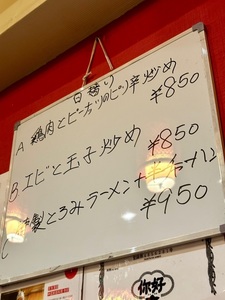 日替り
A 鶏肉とピーナツのピリ辛炒め
¥850
B エビと玉子炒め
¥850
C 製とろみラーメン+半チャーハン
¥950
你好